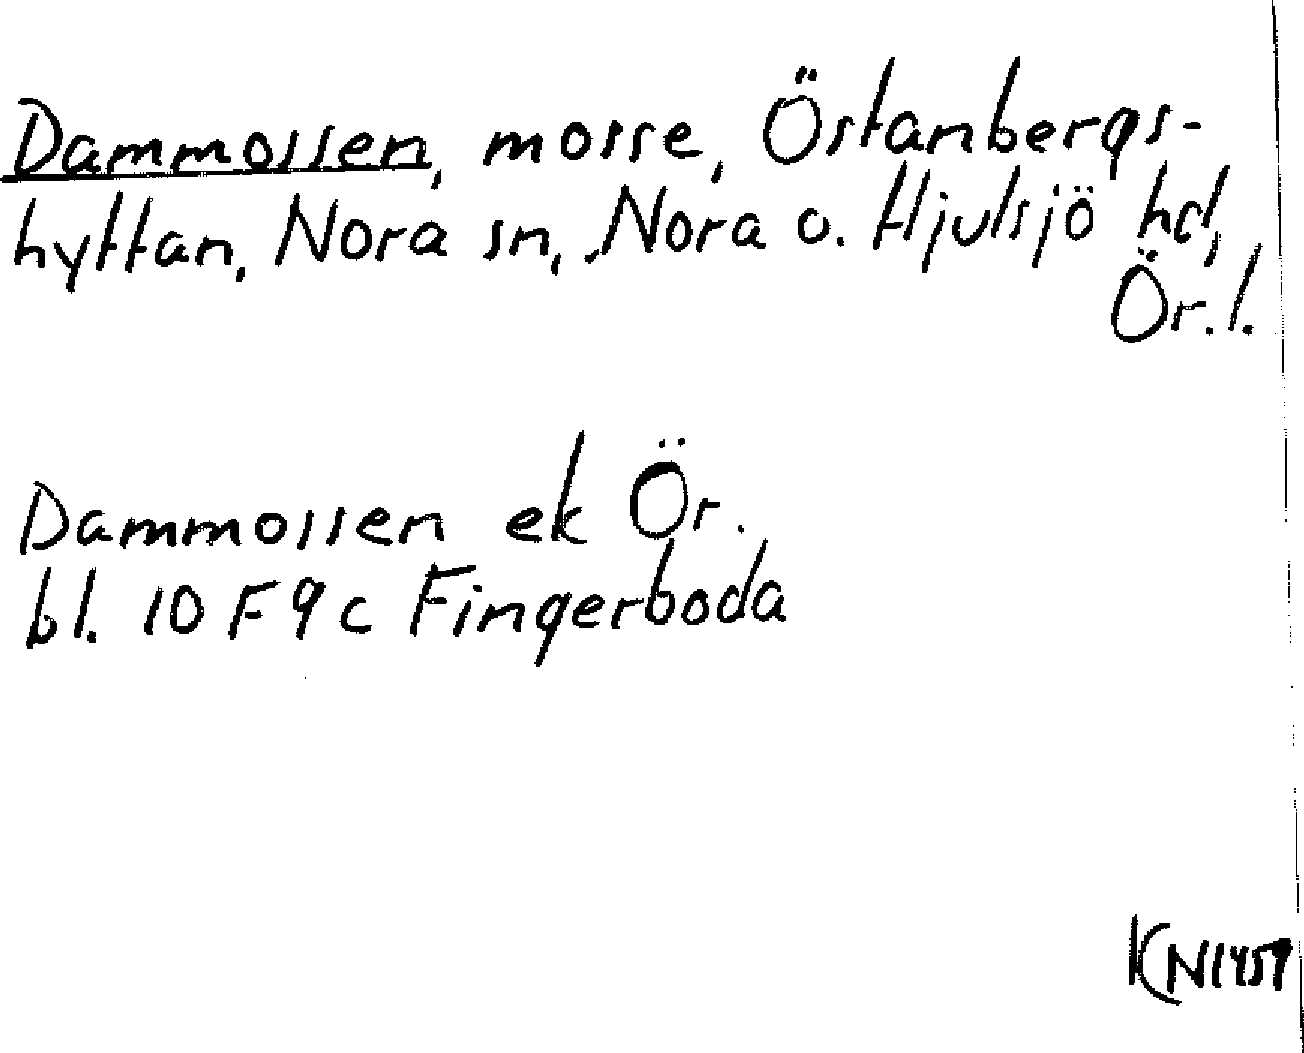 Dammossen, mosse, Östanbergs-
hyttan, Nora sn, Nora o. Hjulsjö hd,
Ör. l.
Dammossen ek Ör.
bl. 10 F 9 c Fingerboda
KN1459